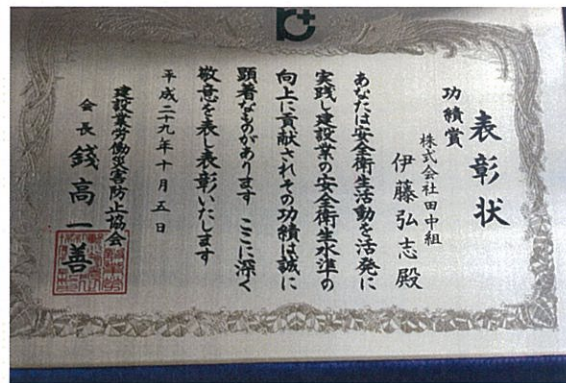 表彰状
功績賞
株式会社田中組
伊藤弘志殿
あなたは安全衛生活動を活発に
実践し建設業の安全衛生水準の
向上に貢献されその功績は誠に
顕著なものがあります ここに深く
敬意を表し表彰いたします
平成二十九年十月五日
建設業労働災害防止協会
会長 錢高一善